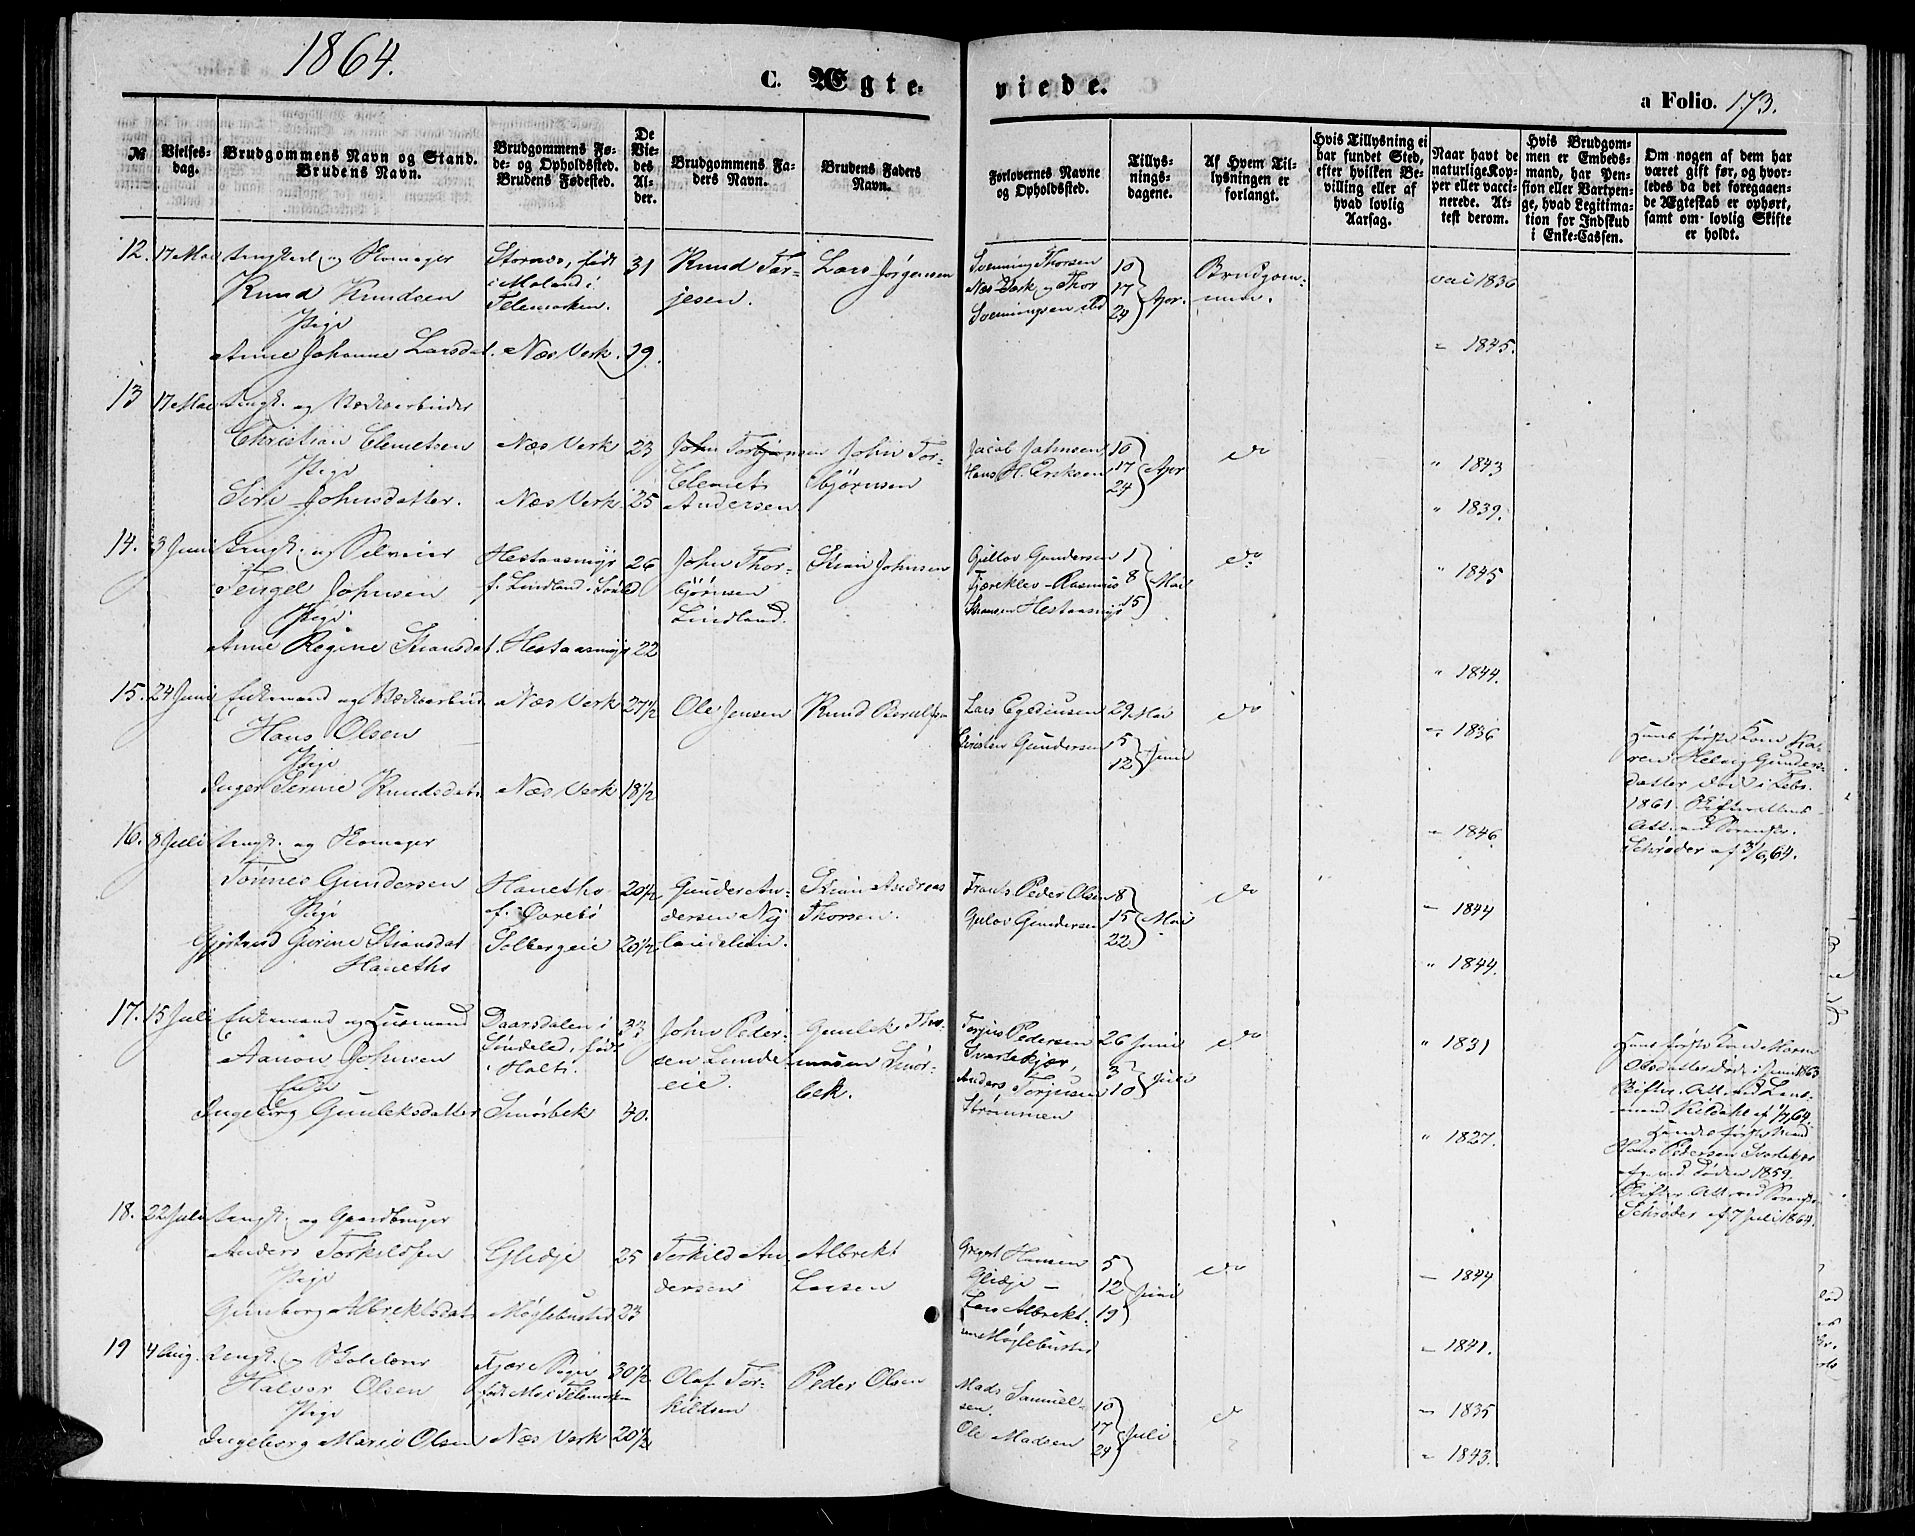 1864.
C. Ægte-
viede.
a Folio. 173.
№
Vielses-
dag.
Brudgommens Navn og Stand.
Brudens Navn.
Brudgommens Fø-
de- og Opholdssted.
Brudens Fødested.
De
Vie-
des
Al-
der.
Brudgommens Fa-
ders Navn.
Brudens Faders
Navn.
Forlovernes Navne
og Opholdssted.
Tillys-
nings-
dagene.
Af Hvem Til-
lysningen er
forlangt.
Hvis Tillysning ei
har fundet Sted,
efter hvilken Be-
villing eller af
hvad lovlig
Aarsag.
Naar havt de
naturlige Kop-
per eller vacci-
nerede. At-
test derom.
Hvis Brudgom-
men er Embeds-
mand, har Pen-
sion eller Vartpen-
ge, hvad Legitima-
tion for Indskud
i Enke-Cassen.
Om nogen af dem har
været gift før, og hvor-
ledes da det foregaaen-
de Ægteskab er ophørt,
samt om lovlig Skifte
er holdt.
12. 17 Mai Ungkarl og Skomager
Knud Knudsen
Pige
Anne Johanne Larsdat.
Stornæs, født
i Moland i
Telemarken.
Næs Verk.
31
19.
Knud Tar-
jesen.
Lars Jørgensen
Svenning Thorsen
Næs Verk og Thor
Svenningsen ibd
10
17
24
Apr.
Brudgom-
men.
vac 1836
" 1845.
13 17 Mai Ungk. og Værksarbeider
Christian Clemetsen
Pige
Siri Johnsdatter.
Næs Verk
Næs Verk
23
25
John Torbjørnsen
Clemet
Andersen
John Tor-
bjørnsen
Jacob Jahnsen
Hans H. Eriksen
10
17
24
Apr
do
" 1843
" 1839.
14. 3 Juni Ungk. og Selveier
Tengel Johnsen
Pige
Anne Regine Stiansdat.
Hestaasmyr
f. Lindland i Sønd
Hestaasmyr
26
22
John Thor-
bjørnsen
Lindland.
Stian Johnsen
Gjullov Gundersen
Fjæreklev - Rasmus
Stiansen Hestaasmyr
1
8
15
Mai
do
" 1845
" 1844.
15. 24 Juni Enkemand og Værksarbeid
Hans Olsen
Pige
Inger Serine Knudsdat.
Næs Verk
Næs Verk
27½
18½
Ole Jensen
Knud
Lars Egediusen
Christen Gundersen
29 Mai
5
12
Juni
do
" 1836
" 1846.
Hans første Kone Ka-
ren Helvig Gunders-
datter død i Febr.
1861. Skifteretlens
Att. ved Sorenskr.
Schrøder af 3/6, 64.
16. 8 Juli Ungk. og Skomager
Tønnes Gundersen
Pige
Gjertrud Gurine Stiansdat
Haneths
Haneths
f. Øvrebø
Solbergeie
20½
20½
Gunder An-
dersen Ny
landsleien.
Stian Andreas
Thorsen.
Frants Peder Olsen
Gulov Gundersen
8
15
22
Mai
do
" 1844
" 1844.
17. 15 Juli Enkemand og Huusmand
Aanon Johnsen
Enke
Ingeborg Gunleksdatter
Daarsdalen i
Søndeled, født
i Holt.
Smørbek
33
40.
John Peder-
sen Lunde
eie.
Gunlek Tho-
masen Smør-
bek.
Torjus Pedersen
Svartekjær,
Anders Torjusen
Strømmen
26 Juni
3
10
Juli
do
" 1831
" 1827.
Hans første Kone Maren
Olsdatter døde i Juni 1863
Skifter. Att. ved Lens-
mand Keldahl af 1/7, 64.
Hendes første Mand
Hans Pedersen Svartekjær
afg. ved Døden 1859.
Skifter. Att. ved Sorenskr.
Schrøder af 7 Juli 1864.
18. 22 Juli Ungk. og Gaardbruger
Anders Terkelsen
Pige
Gunborg Albrektsdat.
Glidje
Møglebusted
25
23
Terkild An
dersen
Albrekt
Larsen
Gregert Hansen
Glidje -
Lars Albrekt-
sen Møglebusted
5
12
19
Juni
do
" 1844
" 1841.
19 4 Aug. Ungk. og Skolelærer
Halvor Olsen
Pige
Ingeborg Marie Olsen
Fjære Sogn
født Mo i Telemarken
Næs Verk
30½
20½
Olaf Ter-
kildsen
Peder Olsen
Mads Samuel-
sen.
Ole Madsen
10
17
24
Juli
do
" 1835
" 1843.